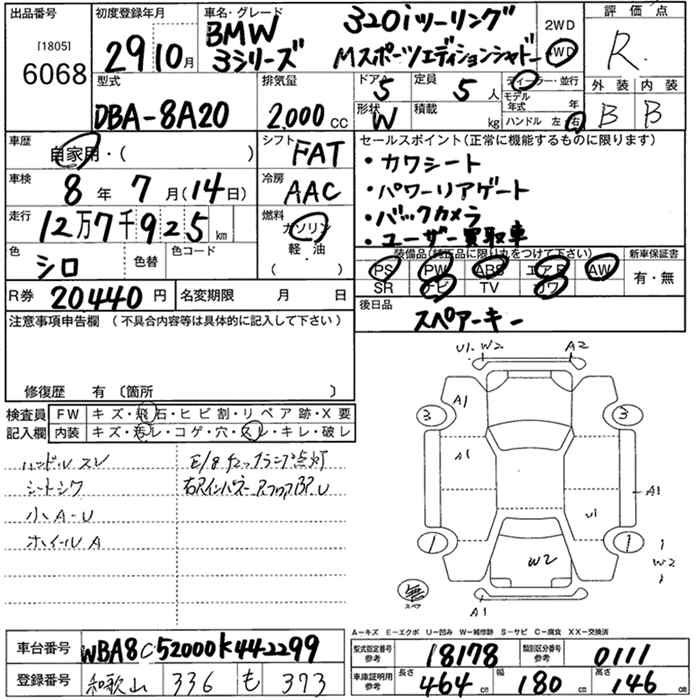 出品番号
[1805]
6068
初度登録年月
29 10月
車名・グレード
BMW 320iツーリング
3シリーズ Mスポーツエディションシャドー
2WD
4WD
評価点
R
外装 内装
B B
型式
DBA-8A20
排気量
2,000 CC
ドア
5
定員
5 人
ディーラー・並行
モデル
年式 年
形状
W
積載 kg
ハンドル 左・右
車歴
自家用・( )
シフト
FAT
車検
8 年 7 月(14日)
冷房
AAC
走行
12万7千925 km
燃料
ガソリン
軽・油
( )
色
シロ
色替
色コード
R券 20440 円
名変期限 月 日
セールスポイント(正常に機能するものに限ります)
・カワシート
・パワーリアゲート
・バックカメラ
・ユーザー買取車
装備品(純正品に限り丸をつけて下さい)
PS PW ABS エアB AW
SR ナビ TV カワ
新車保証書
有・無
後日品
スペアーキー
注意事項申告欄 (不具合内容等は具体的に記入して下さい)
修復歴 有 〔箇所 〕
検査員
記入欄
FW キズ・飛石・ヒビ割・リペア跡・X要
内装 キズ・汚レ・コゲ・穴・スレ・キレ・破レ
ハンドルスレ
シートシワ
小A-U
ホイールA
E/gチェックランプ点灯
U1. W2 A2
3 A1 3
A1
A1
U1
1 1
W2
W2
無
スペア
A1
A-キズ E-エクボ U-凹み W-補修跡 S-サビ C-腐食 XX-交換済
車台番号 WBA8C52000K442299
登録番号 和歌山 336 も 373
型式指定番号
参考
18178
類別区分番号
参考
0111
車庫証明用
参考
長さ 464 cm
幅 180 cm
高さ 146 cm